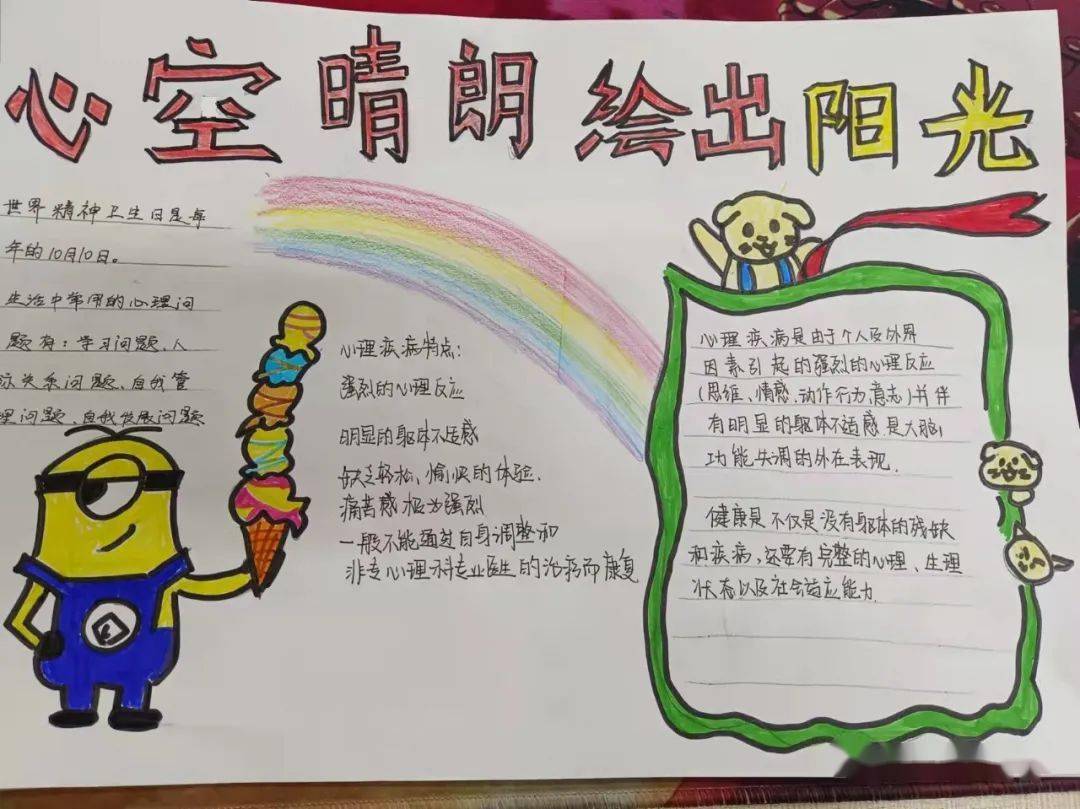 心空晴朗 绘出阳光
世界精神卫生日是每
年的10月10日。
生活中常用的心理问
题有：学习问题、人
际关系问题、自我管
理问题、自我发展问题
心理疾病特点：
强烈的心理反应
明显的躯体不适感
缺乏轻松、愉快的体验.
痛苦感极为强烈
一般不能通过自身调整和
非专心理科专业医生的治疗而康复
心理疾病是由于个人及外界
因素引起的强烈的心理反应
(思维、情感、动作行为、意志)并伴
有明显的躯体不适感,是大脑
功能失调的外在表现.
健康是不仅是没有躯体的残缺
和疾病,还要有完整的心理、生理
状态以及社会适应能力.